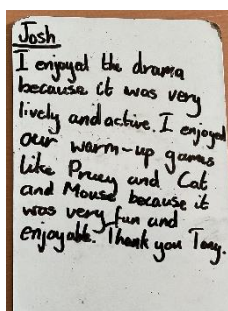 Josh
I enjoyed the drama
because it was very
lively and active. I enjoyed
our warm-up games
like Pruey and Cat
and Mouse because it
was very fun and
enjoyable. Thank you Tony.